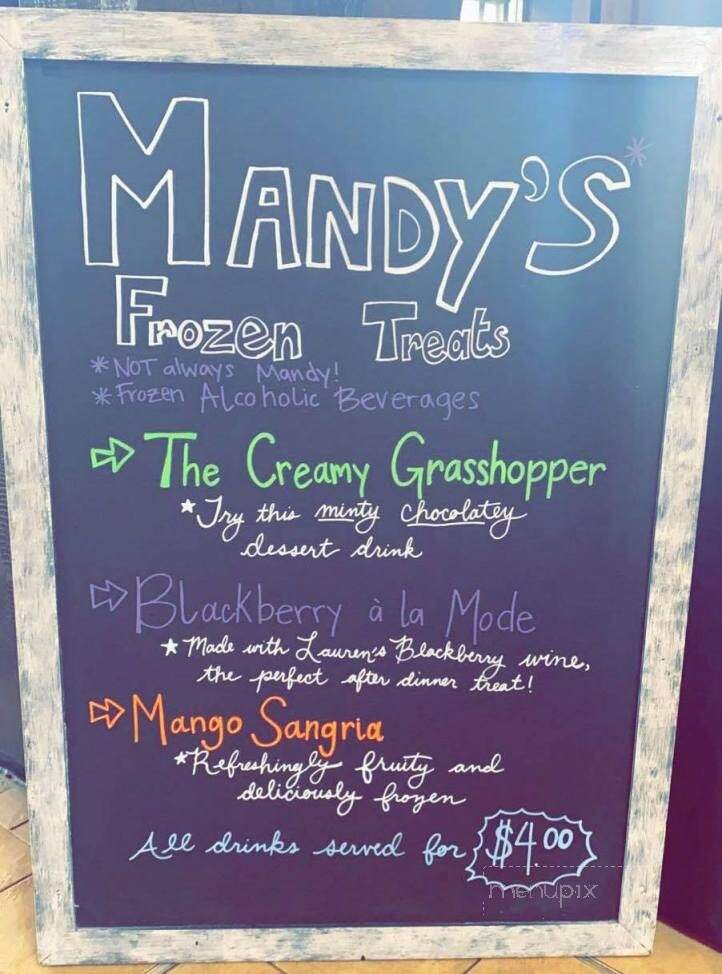 MANDY'S*
Frozen Treats
*NOT always Mandy!
*Frozen Alcoholic Beverages
The Creamy Grasshopper
*Try this minty chocolatey
dessert drink
Blackberry à la Mode
*Made with Lauren's Blackberry wine,
the perfect after dinner treat!
Mango Sangria
*Refreshingly fruity and
deliciously frozen
All drinks served for $4.00
menupix